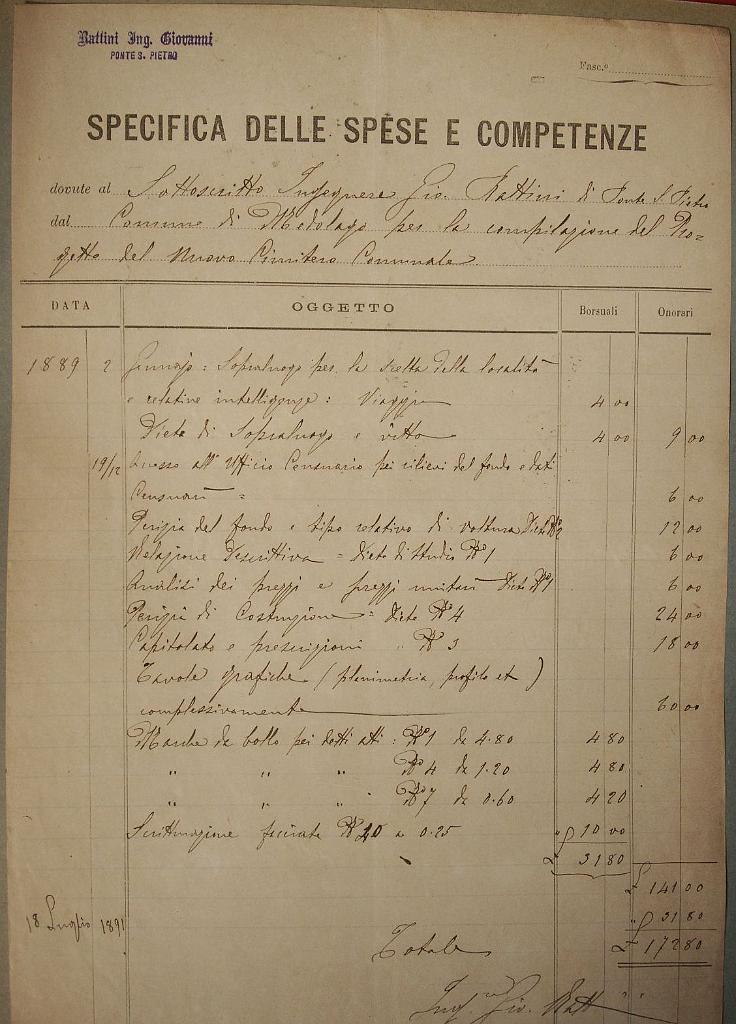 Rattini Ing. Giovanni
PONTE S. PIETRO
Fasc.º
SPECIFICA DELLE SPESE E COMPETENZE
dovute al Sottoscritto Ingegnere Gio. Rattini di Ponte S. Pietro
dal Comune di Medolago per la compilazione del Pro=
getto del Nuovo Cimitero Comunale
DATA OGGETTO Borsuali Onorari
1889 2 Gennajo: Sopraluogo per la scelta della località
e relative intelligenze: Viaggio 4 00
Diete di Sopraluogo e vitto 4 00 9 00
19/12 all'Ufficio Censuario pei rilievi del fondo e dati
Censuari = 6 00
Perizia del fondo e tipo relativo di voltura Diete Nº 2 12 00
Relazione Descrittiva = Diete di Studio Nº 1 6 00
Analisi dei prezzi e prezzi unitari Diete Nº 1 6 00
Perizia di Costruzione = Diete Nº 4 24 00
Capitolato e prescrizioni " Nº 3 18 00
Tavole grafiche (planimetria, profilo et )
complessivamente 60 00
Marche da bollo pei detti atti: Nº 1 da 4.80 4 80
" " " Nº 4 da 1.20 4 80
" " " Nº 7 da 0.60 4 20
Scritturazione facciate Nº 40 a 0.25 " 10 00
£ 31 80
£ 141 00
18 Luglio 1891 " 31 80
Totale £ 172 80
Ing. Gio. Ratt